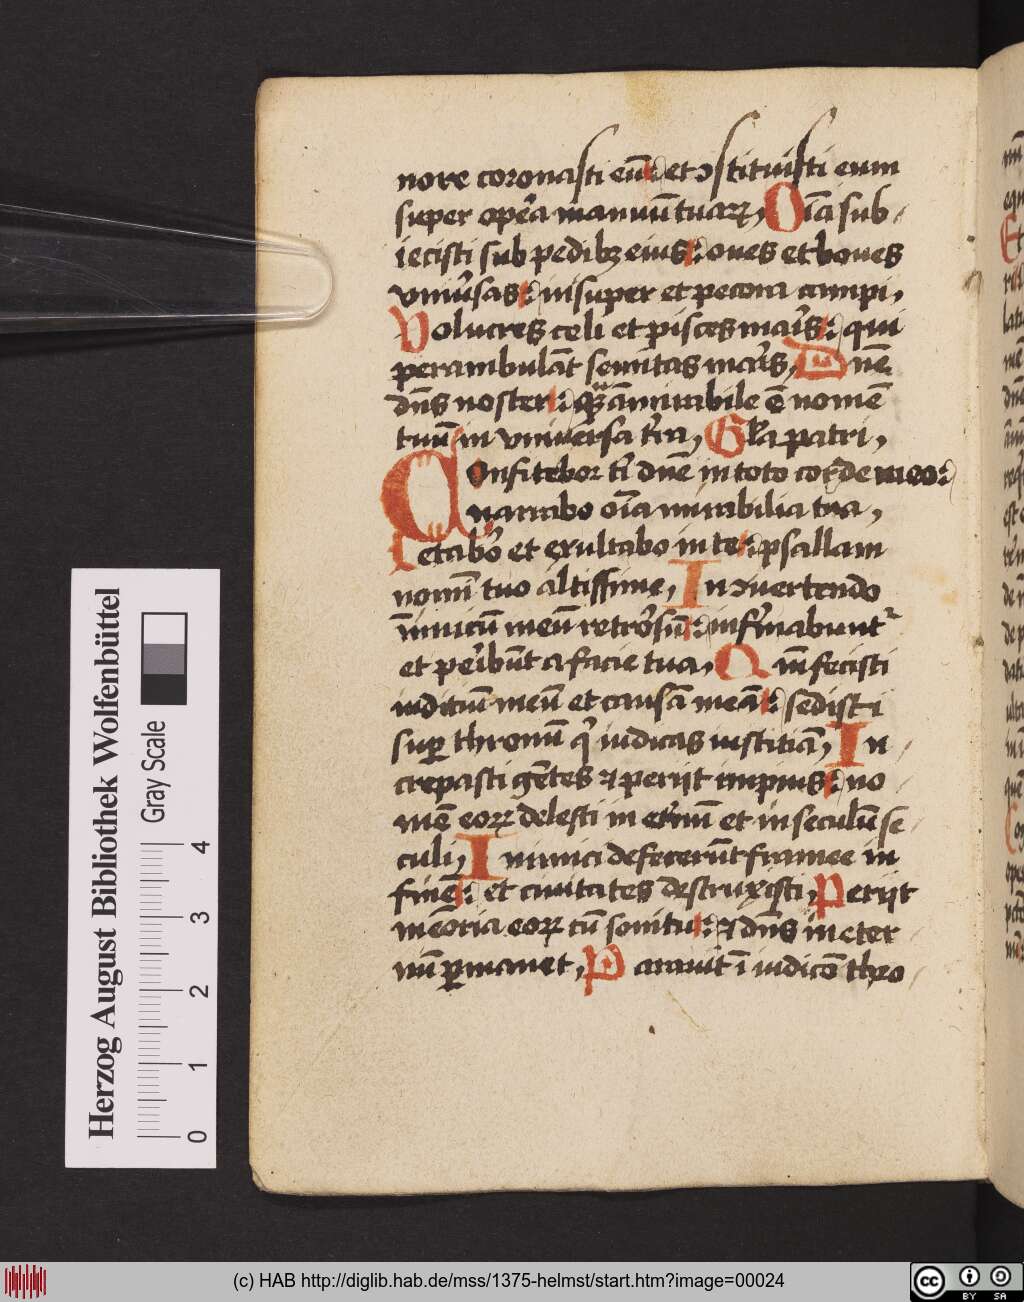 nore coronasti eū: et ↄstituisti eum
super opera manuū tuaꝝ, Oīa sub-
iecisti sub pedibꝫ eius: oues et boues
vniu̾sas: insuper et pecora campi,
Volucres celi et pisces mar̾is: qui
perambulāt semitas mar̾is, Dn̄e
dn̄s noster: qͣꝫ āmirabile ē nomē
tuū in vniuersa t̾ra, Gl̄a patri,
Confitebor t̾i dn̄e in toto corde meo:
narrabo oīa mirabilia tua,
Letabor̾ et exultabo in te: psallam
nomī tuo altissime, In ↄuertendo
īnimicū meū retror̾sū: infir̾mabunt᷑
et per̾ibūt a facie tua, Qm̄ fecisti
iuditiū meū et causā meā: sedisti
suꝑ thronū qͥ iudicas iustitiā, In
crepasti gētes ⁊ perijt impius: no
mē eoꝝ delesti in et̾nū et in seculū se
culi, Inimici defecerūt framee in
finē: et ciuitates destruxisti, Perijt
mēoria eoꝝ cū sonitu: ⁊ dn̄s in eter
nū ꝑmanet, Parauit ī iudicō thro
Herzog August Bibliothek Wolfenbüttel
Gray Scale
0 1 2 3 4
(c) HAB http://diglib.hab.de/mss/1375-helmst/start.htm?image=00024
cc BY SA